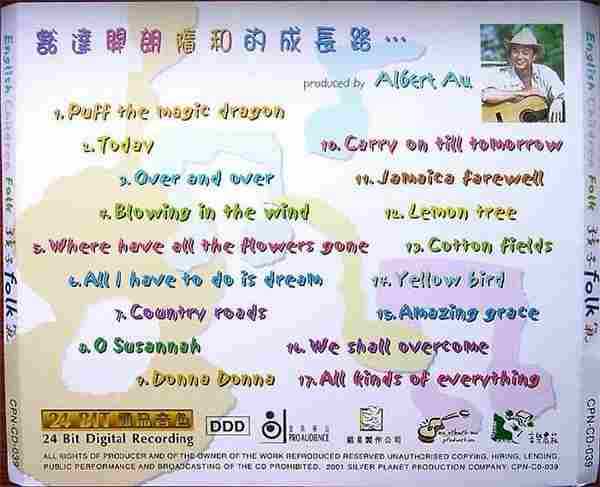 豁達開朗隨和的成長路...
produced by Albert Au
1. Puff the magic dragon
2. Today
3. Over and over
4. Blowing in the wind
5. Where have all the flowers gone
6. All I have to do is dream
7. Country roads
8. O Susannah
9. Donna Donna
10. Carry on till tomorrow
11. Jamaica farewell
12. Lemon tree
13. Cotton fields
14. Yellow bird
15. Amazing grace
16. We shall overcome
17. All kinds of everything
24 BIT 極品音色
24 Bit Digital Recording
DDD
PRO AUDIENCE
ALL RIGHTS OF PRODUCER AND OF THE OWNER OF THE WORK REPRODUCED RESERVED UNAUTHORISED COPYING, HIRING, LENDING,
PUBLIC PERFORMANCE AND BROADCASTING OF THE CD PROHIBITED. 2001 SILVER PLANET PRODUCTION COMPANY. CPN-CD-039
English Children Folk
folk
CPN-CD-039
English Children Folk
folk
CPN-CD-039